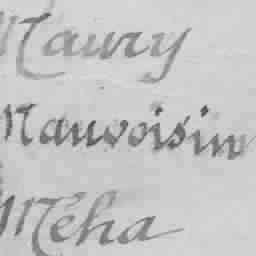 Maury
Mauvoisin
Méha